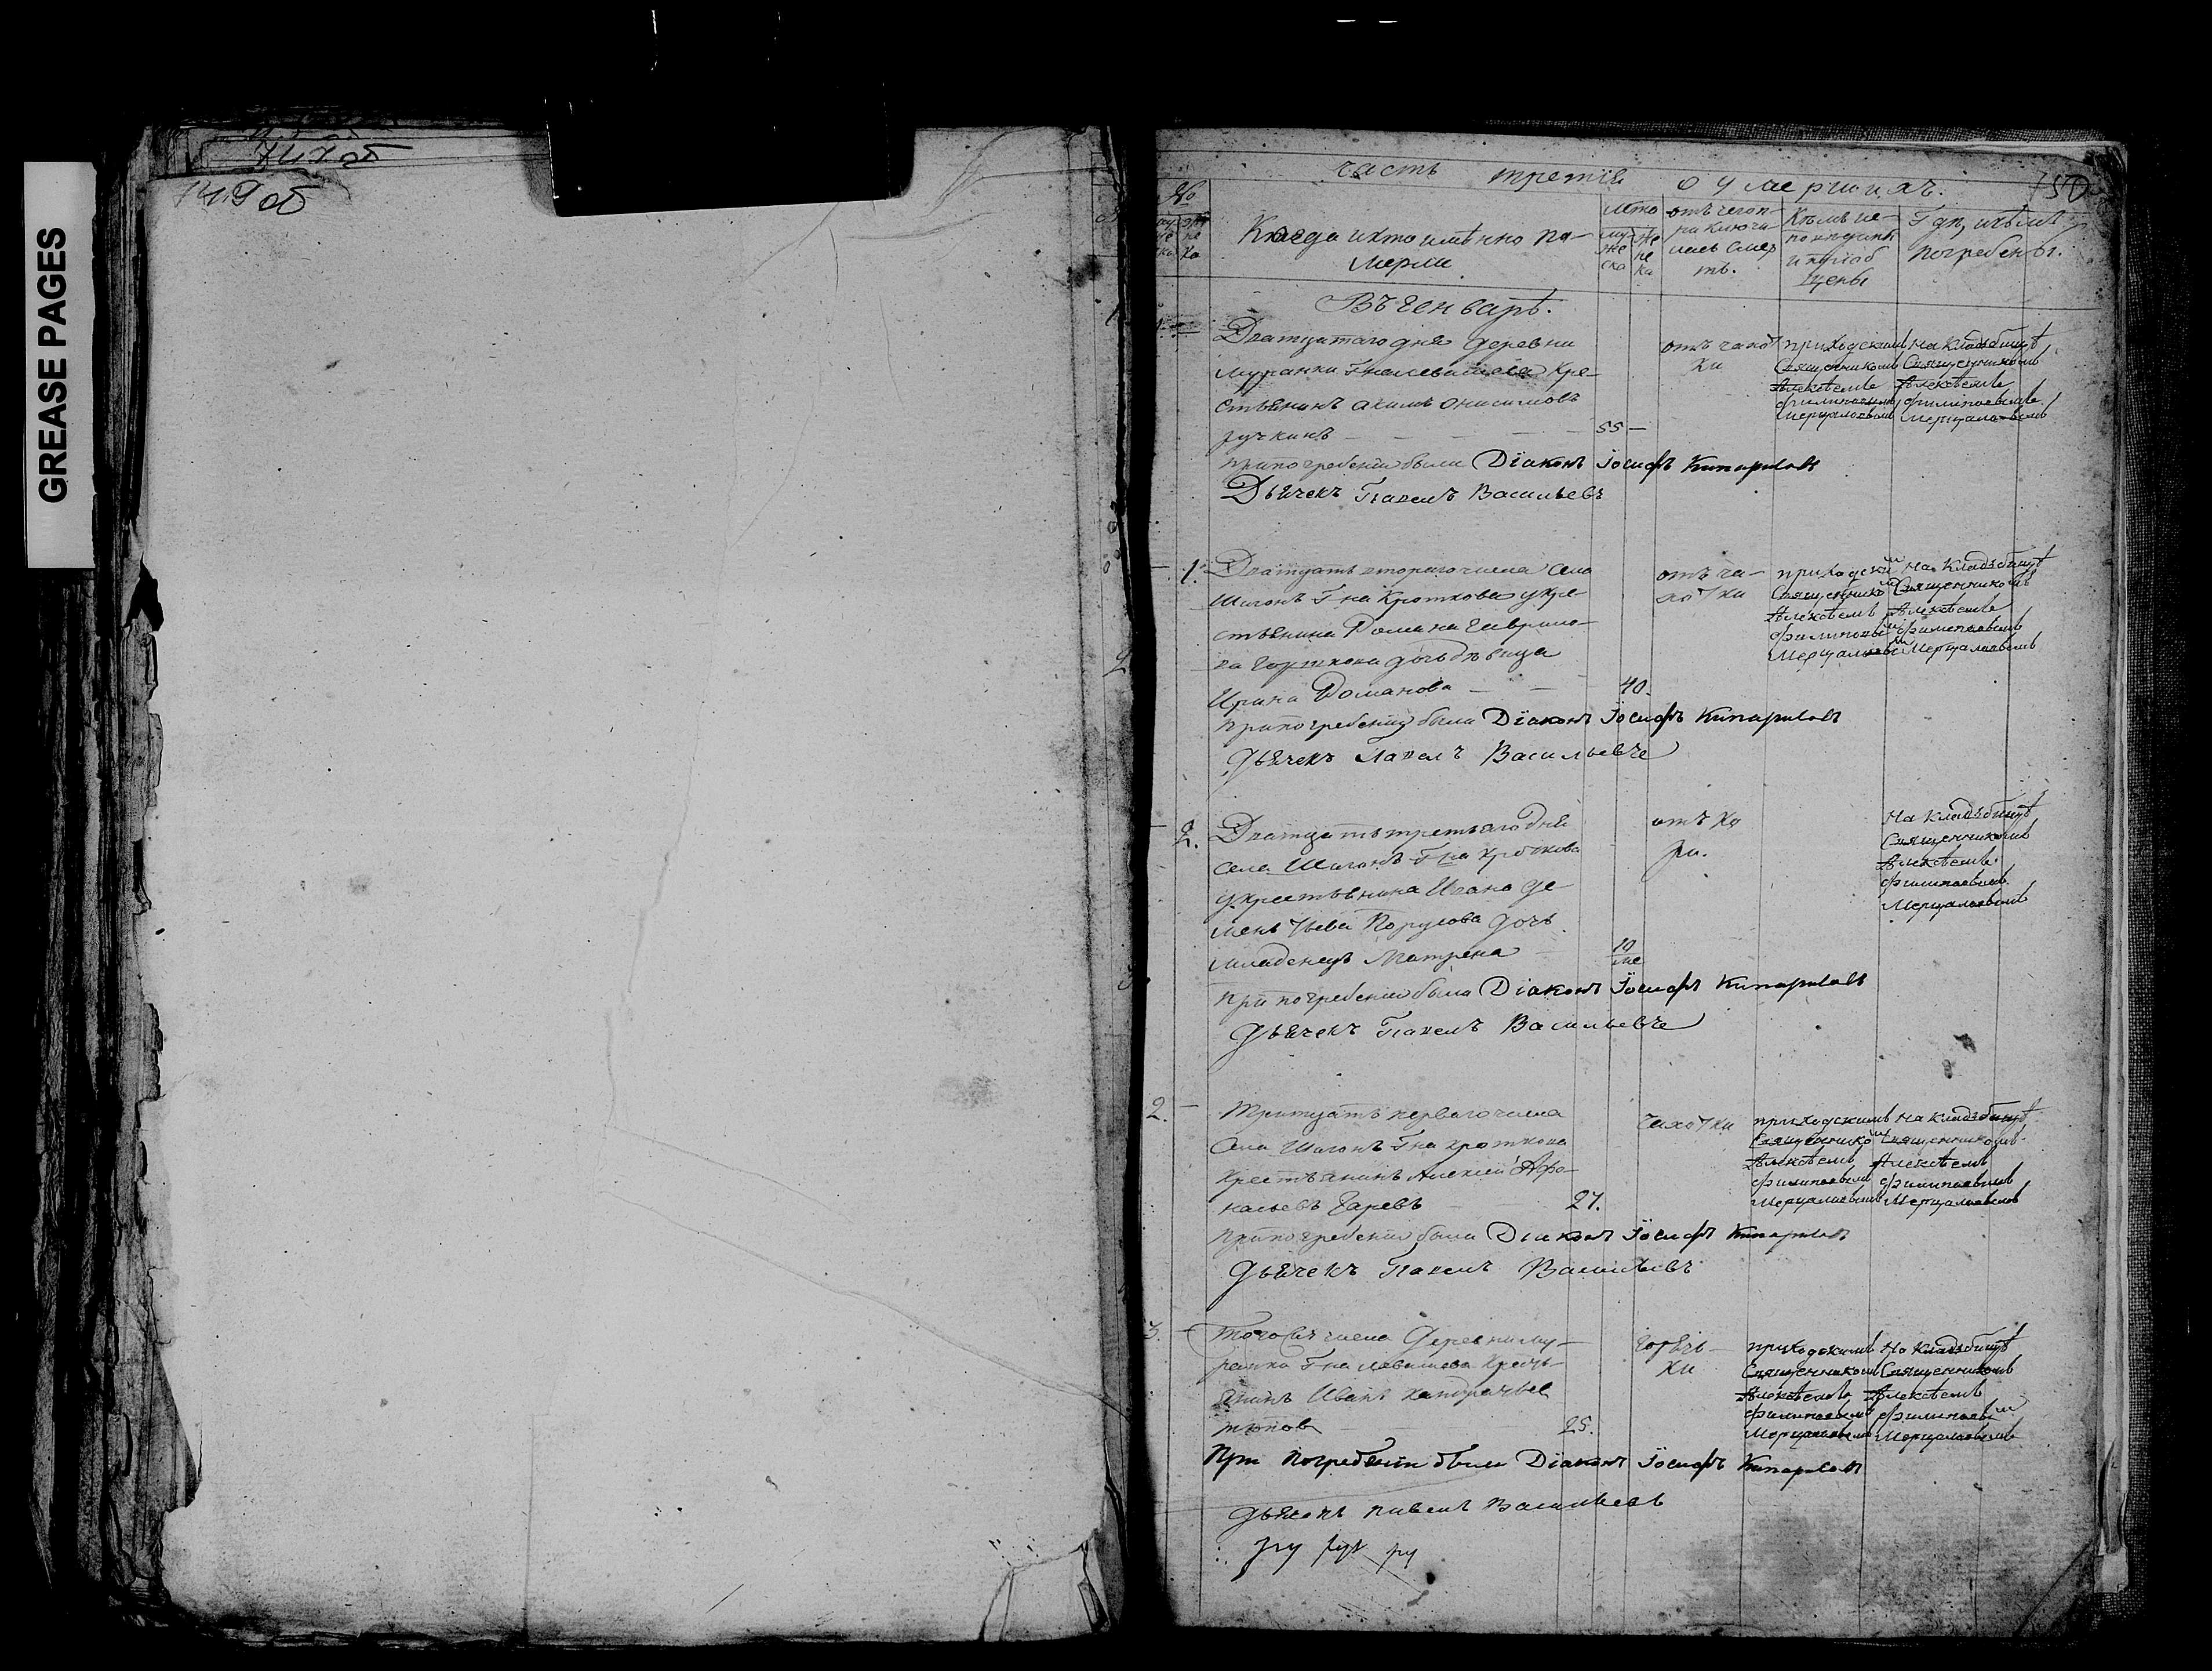 GREASE PAGES
149 об
часть третїя о умершихъ. 150
№
Когда ихто имѣнно по-
мерли
лето
отъ чего п-
риключи-
лась смер
ть.
Кѣмъ ис-
поведаны
и приоб
щены
Гдѣ, икѣмъ
погребены.
Въ генварѣ.
Дватцатаго дня деревни
муранки Гна левашева кре-
стьянинъ акимъ онисимовъ
ручкинъ — 55 —
отъ чахот
ки
приходскимъ
Священникомъ
Алексѣемъ
филиповымъ
Мерцаловымъ
На Кладбищѣ
Священникомъ
Алексѣемъ
филиповымъ
Мерцаловымъ
припогребенїи были Дїаконъ Їосифъ Кипарисовъ
Дьячекъ Павелъ Васильевъ
1. Дватцать втораго числа села
Шигонъ Гна Кроткова укре
стьянина Романа Гаврило-
ва дочь дѣвица
Ирина Романова — 40.
отъ ча-
хотки
приходским
Священником
Алексѣемъ
филиповым
Мерцаловым
На Кладбищѣ
Священникомъ
Алексѣемъ
Филиповымъ
Мерцаловымъ
припогребенїи были Дїаконъ Їосифъ Кипарисовъ
Дьячекъ Павелъ Васильевъ
2. Дватцать третьяго дня
села Шигонъ Гна Кроткова
укрестьянина Ивана де
ментьева дочь
младенецъ Матрена 10 ме
отъ ко
ри.
На кладбищѣ
Священникомъ
Алексѣемъ
Филиповымъ
Мерцаловымъ
при погребенїи были Дїаконъ Їосифъ Кипарисовъ
Дьячекъ Павелъ Васильевъ
2. Тритцать перваго числа
села Шигонъ Гна кроткова
крестьянинъ Алексей Афа-
насьевъ 27.
чахотки
приходскимъ
Священником
Алексѣемъ
филиповымъ
Мерцаловымъ
На Кладбищѣ
Священникомъ
Алексѣемъ
филиповымъ
Мерцаловымъ
припогребенїи были Дїаконъ Їосифъ Кипарисовъ
Дьячекъ Павелъ Васильевъ
3. Тогожъ числа Деревни му-
ранки Гна левашева Кресть-
янинъ Иванъ
25.
горячь-
ки
приходскимъ
Священникомъ
Алексѣемъ
филиповымъ
Мерцаловымъ
На Кладбищѣ
Священникомъ
Алексѣемъ
филиповым
Мерцаловымъ
При погребенїи были Дїаконъ Їосифъ Кипарисовъ
дьячекъ павелъ Васильевъ